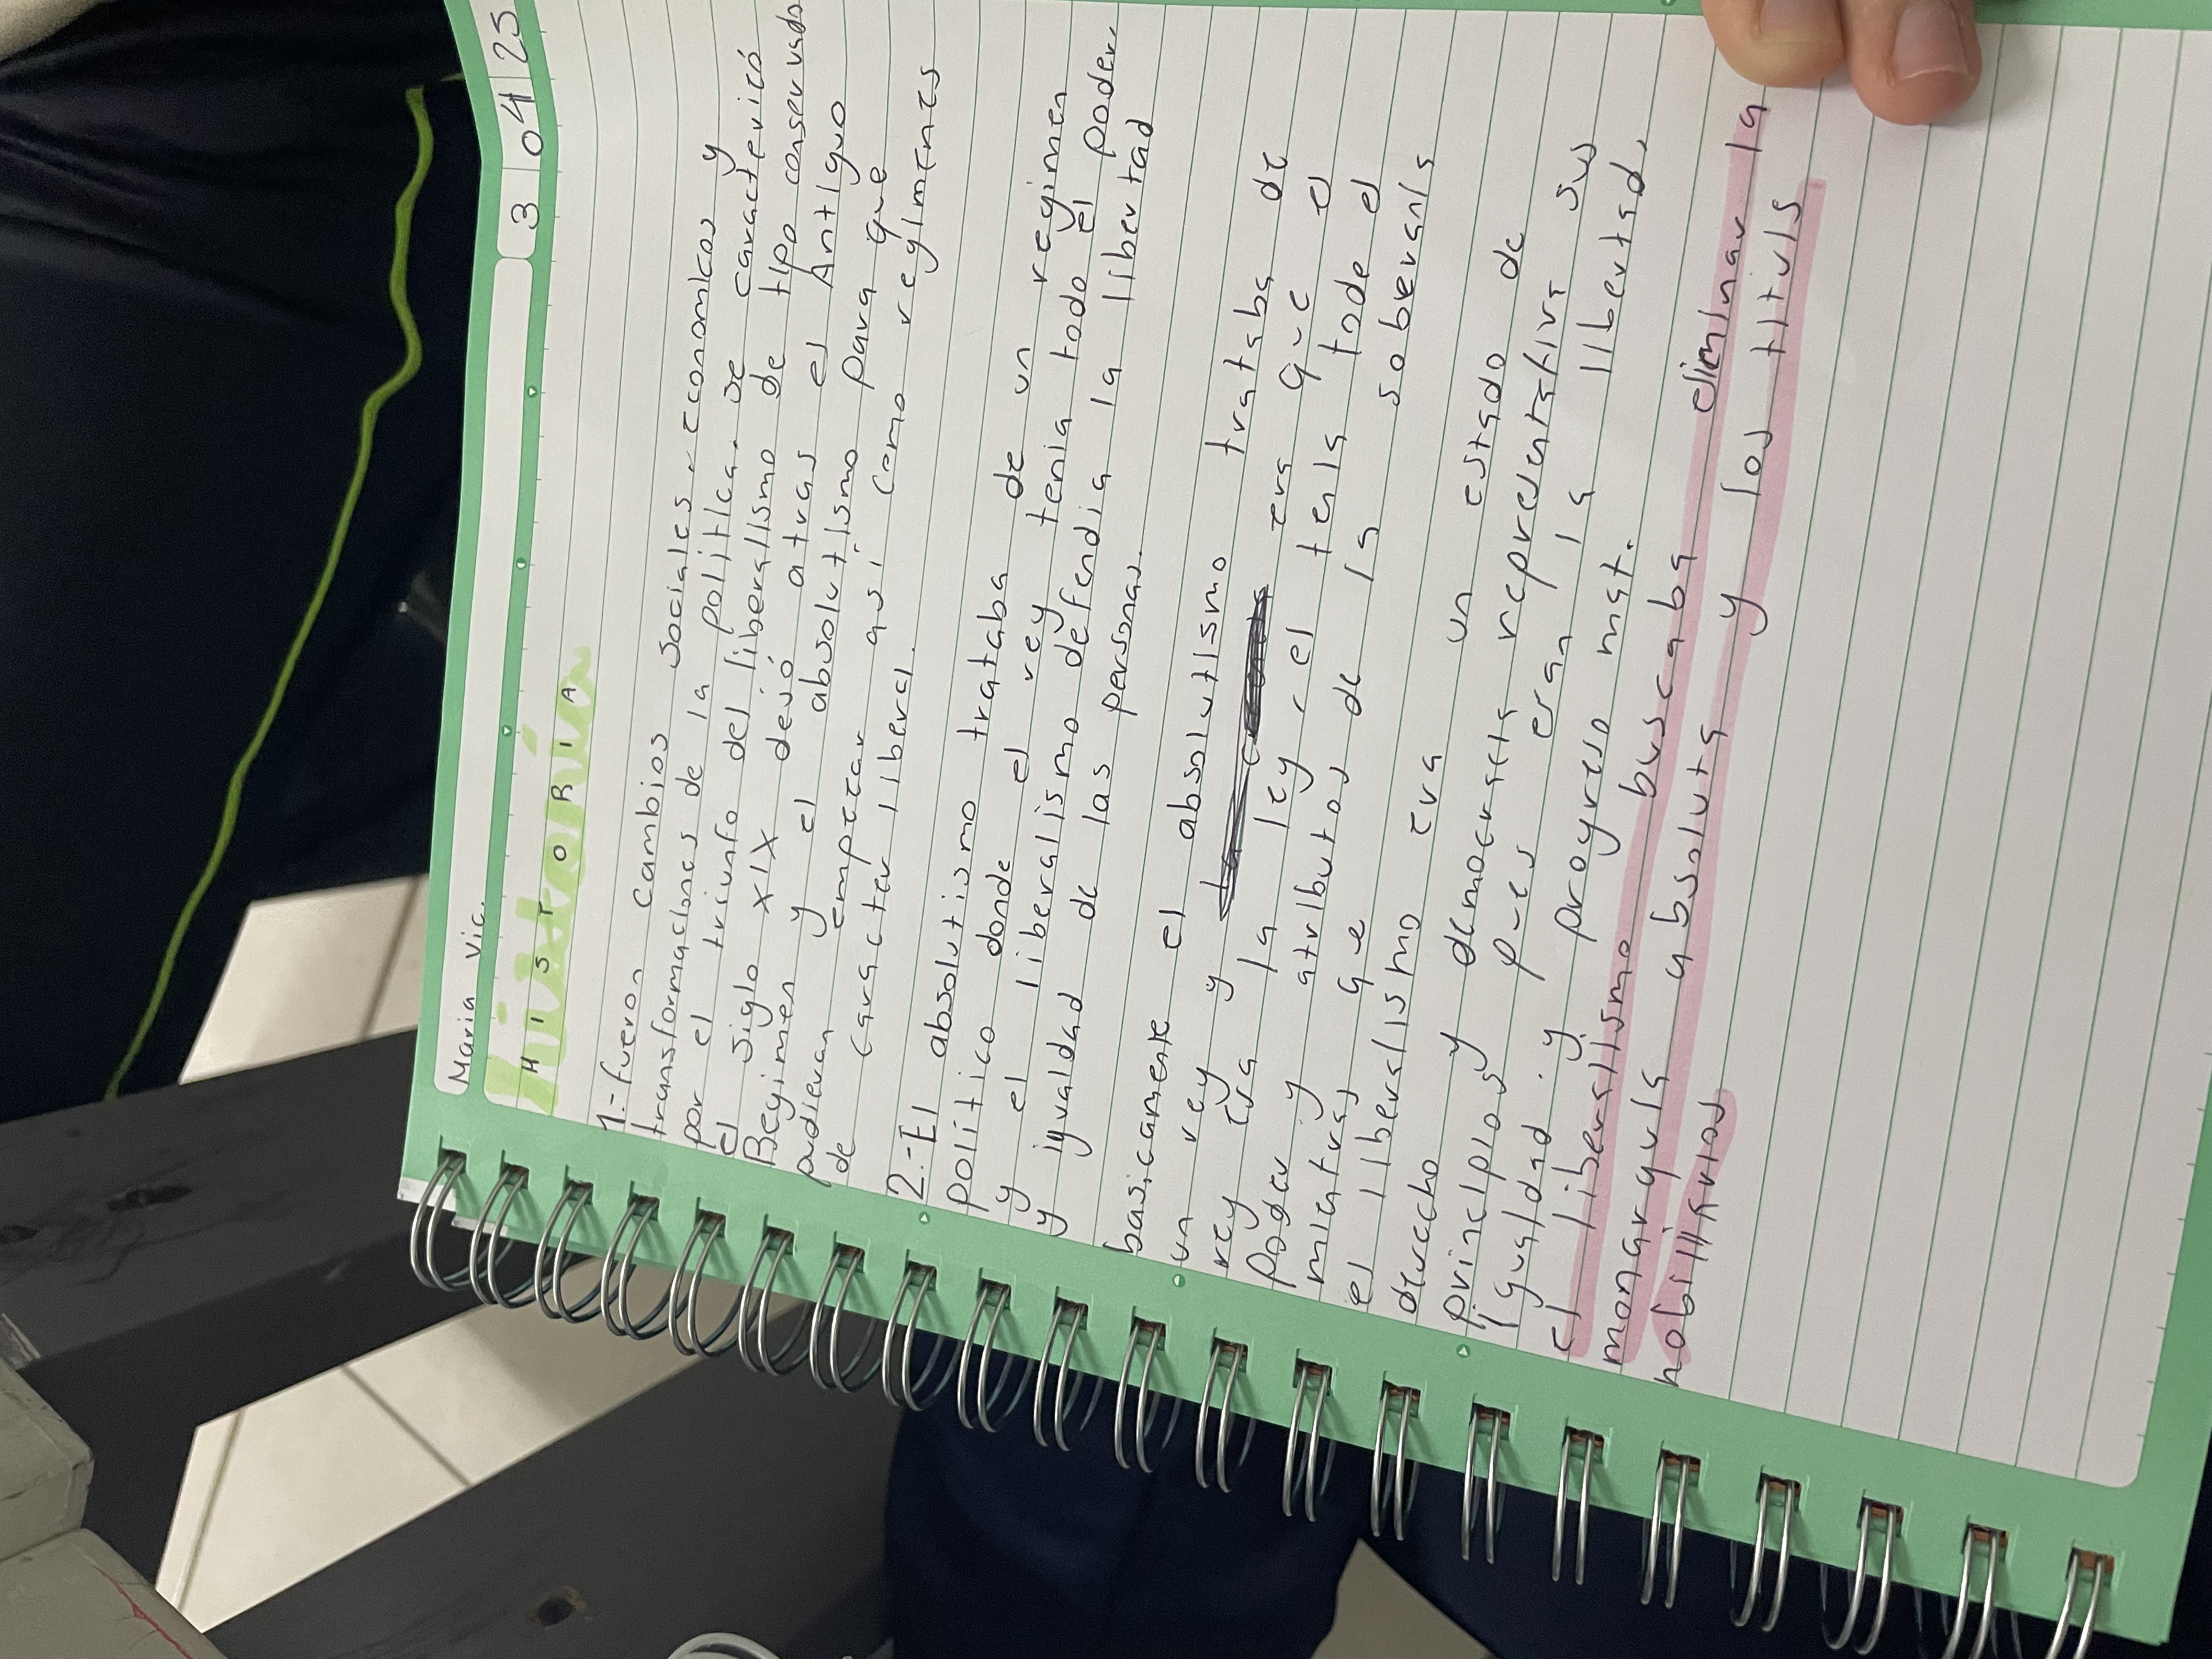 Maria Vic.
3 04 25
historia
HISTORIA
1.- fueron cambios sociales, economicos y
transformaciones de la politica. se caracterizó
por el triunfo del liberalismo de tipo conservado
el siglo XIX dejó atras el Antiguo
Regimen y el absolutismo para que
pudieran empezar asi como regimenes
de caracter liberal.
2.- El absolutismo trataba de un regimen
politico donde el rey tenia todo el poder,
y el liberalismo defendia la libertad
y igualdad de las personas.
basicamente el absolutismo trataba de
un rey y era que el
rey era la ley, el tenia todo el
poder y atributos de la soberania
mientras que
el liberalismo era un estado de
derecho y democracia representativa sus
principios pues eran la libertad,
igualdad. y progreso mat.
el liberalismo buscaba eliminar la
monarquia absoluta y los tituls
nobiliarios